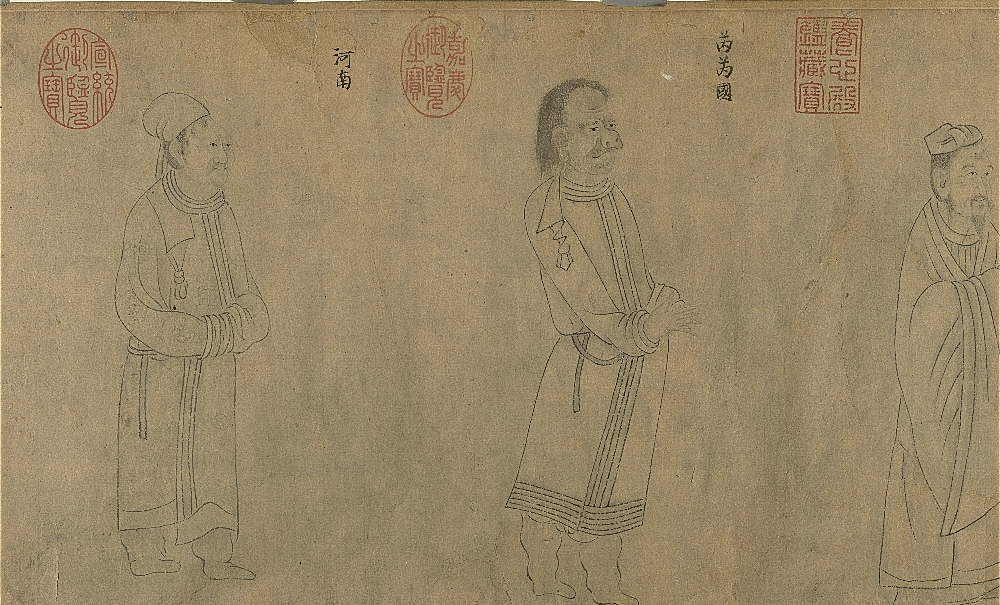 養心殿
鑑藏寶
芮芮國
嘉慶
御覽
之寶
河南
宣統
御覽
之寶